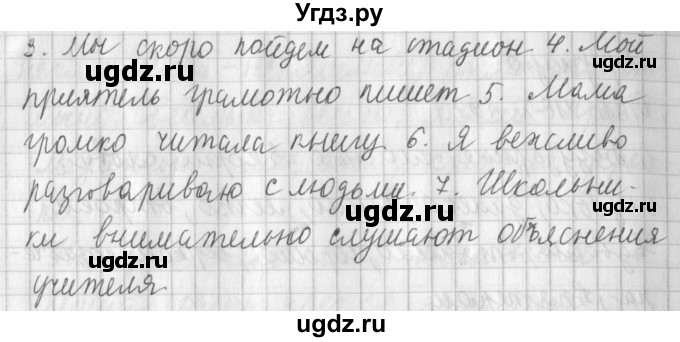 Угдз.ру
3. Мы скоро пойдем на стадион 4. Мой
приятель грамотно пишет 5. Мама
громко читала книгу. 6. Я вежливо
разговариваю с людьми. 7. Школьни-
ки внимательно слушают объяснения
учителя.
ugdz.ru
ugdz.ru
ugdz.ru
ugdz.ru
ugdz.ru
ugdz.ru
ugdz.ru
ugdz.ru